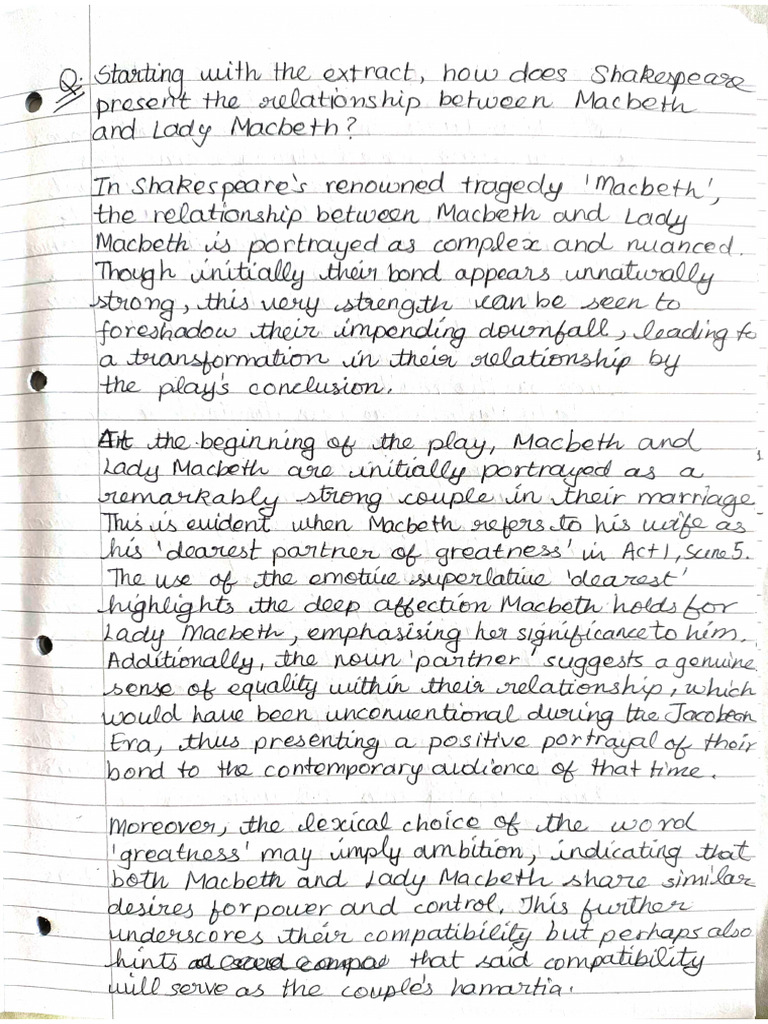 Q. Starting with the extract, how does Shakespeare
present the relationship between Macbeth
and Lady Macbeth?
In Shakespeare's renowned tragedy 'Macbeth',
the relationship between Macbeth and Lady
Macbeth is portrayed as complex and nuanced.
Though initially their bond appears unnaturally
strong, this very strength can be seen to
foreshadow their impending downfall, leading to
a transformation in their relationship by
the play's conclusion.
At the beginning of the play, Macbeth and
Lady Macbeth are initially portrayed as a
remarkably strong couple in their marriage.
This is evident when Macbeth refers to his wife as
his 'dearest partner of greatness' in Act 1, Scene 5.
The use of the emotive superlative 'dearest'
highlights the deep affection Macbeth holds for
Lady Macbeth, emphasising her significance to him.
Additionally, the noun 'partner' suggests a genuine
sense of equality within their relationship, which
would have been unconventional during the Jacobean
Era, thus presenting a positive portrayal of their
bond to the contemporary audience of that time.
Moreover, the lexical choice of the word
'greatness' may imply ambition, indicating that
both Macbeth and Lady Macbeth share similar
desires for power and control. This further
underscores their compatibility but perhaps also
hints that said compatibility
will serve as the couple's hamartia.